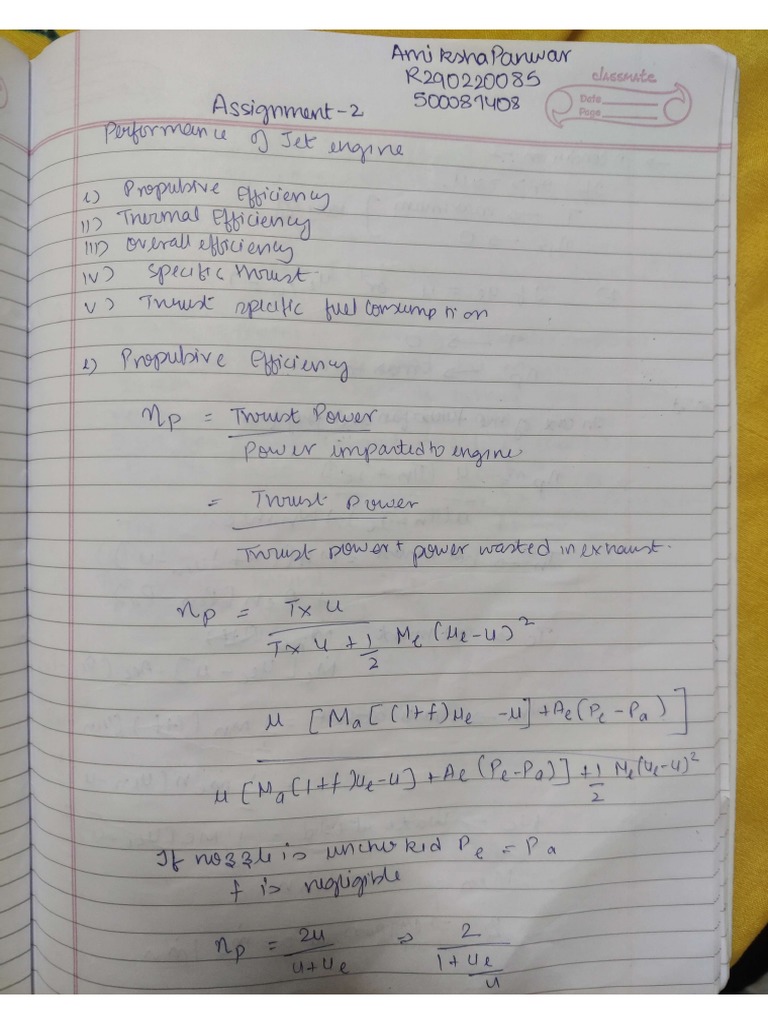 Amiksha Panwar
R290220085
500081408
classmate
Date
Page
Assignment-2
Performance of Jet engine
i) Propulsive Efficiency
ii) Thermal Efficiency
iii) Overall efficiency
iv) Specific thrust
v) Thrust specific fuel consumption
i) Propulsive Efficiency
ηp = Thrust Power
Power imparted to engine
= Thrust power
Thrust power + power wasted in exhaust.
ηp = T×u
T×u + 1/2 Me(ue-u)²
u [Ma[(1+f)ue -u] + Ae(Pe - Pa)]
u [Ma(1+f)ue-u] + Ae(Pe-Pa)] + 1/2 Me(ue-u)²
If nozzle is unchoked Pe = Pa
f is negligible
ηp = 2u/(u+ue) ⇒ 2/(1+ue/u)